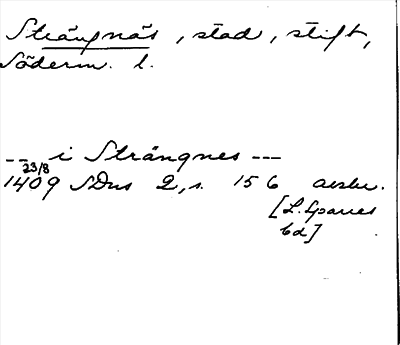 Strängnäs, stad, stift,
Söderm. l.
--- i Strängnes ---
23/8
1409 SDns 2, s. 156 avskr.
[L. Sparres
bd]